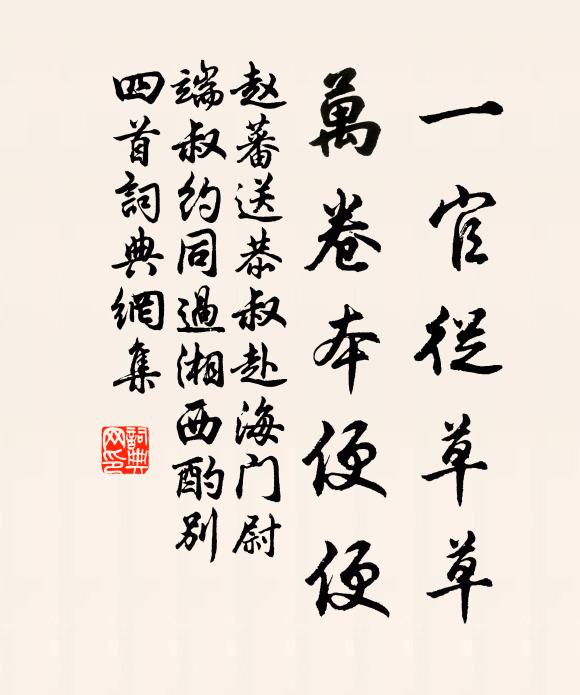 一官從草草
萬卷本便便
赵蕃送恭叔赴海门尉
端叔約同過湘西酌别
四首詞典網集
詞典
网印